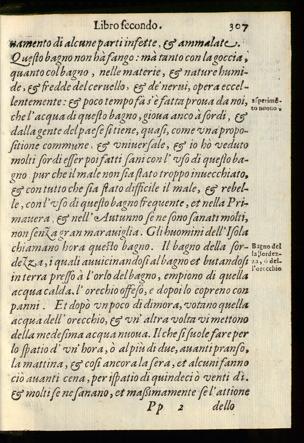 Libro secondo. 307
namento di alcune parti infette, & ammalate.
Questo bagno non hà fango: mà tanto con la goccia,
quanto col bagno, nelle materie, & nature humi-
de, & fredde del ceruello, & de' nerui, opera eccel-
lentemente: & poco tempo fà s'è fatta proua da noi,
che l'acqua di questo bagno, gioua anco à sordi, &
dalla gente del paese si tiene, quasi, come vna propo-
sitione commune, & vniuersale, & io hò veduto
molti sordi esser poi fatti sani con l'vso di questo ba-
gno pur che il male non sia stato troppo inuecchiato,
& con tutto che sia stato difficile il male, & rebel-
le, con l'vso di questo bagno frequente, et nella Pri-
mauera, & nell'Autunno se ne sono sanati molti,
non senza gran marauiglia. Gli huomini dell'Isola
chiamano hora questo bagno. Il bagno della sor-
dezza, i quali auuicinandosi al bagno et butandosi
in terra presso à l'orlo del bagno, empiono di quella
acqua calda, l'orecchio offeso, e dopoi lo copreno con
panni. Et dopò vn poco di dimora, votano quella
acqua dell'orecchio, & vn'altra volta vi mettono
della medesima acqua nuoua. Il che si suole fare per
lo spatio d'vn'hora, ò al più di due, auanti pranso,
la mattina, & così ancora la sera, et alcuni fanno
ciò auanti cena, per ispatio di quindeci ò venti dì.
& molti se ne sanano, et massimamente se l'attione
Pp 2 dello
Bagno del
la sordez-
za, ò del-
l'orecchio